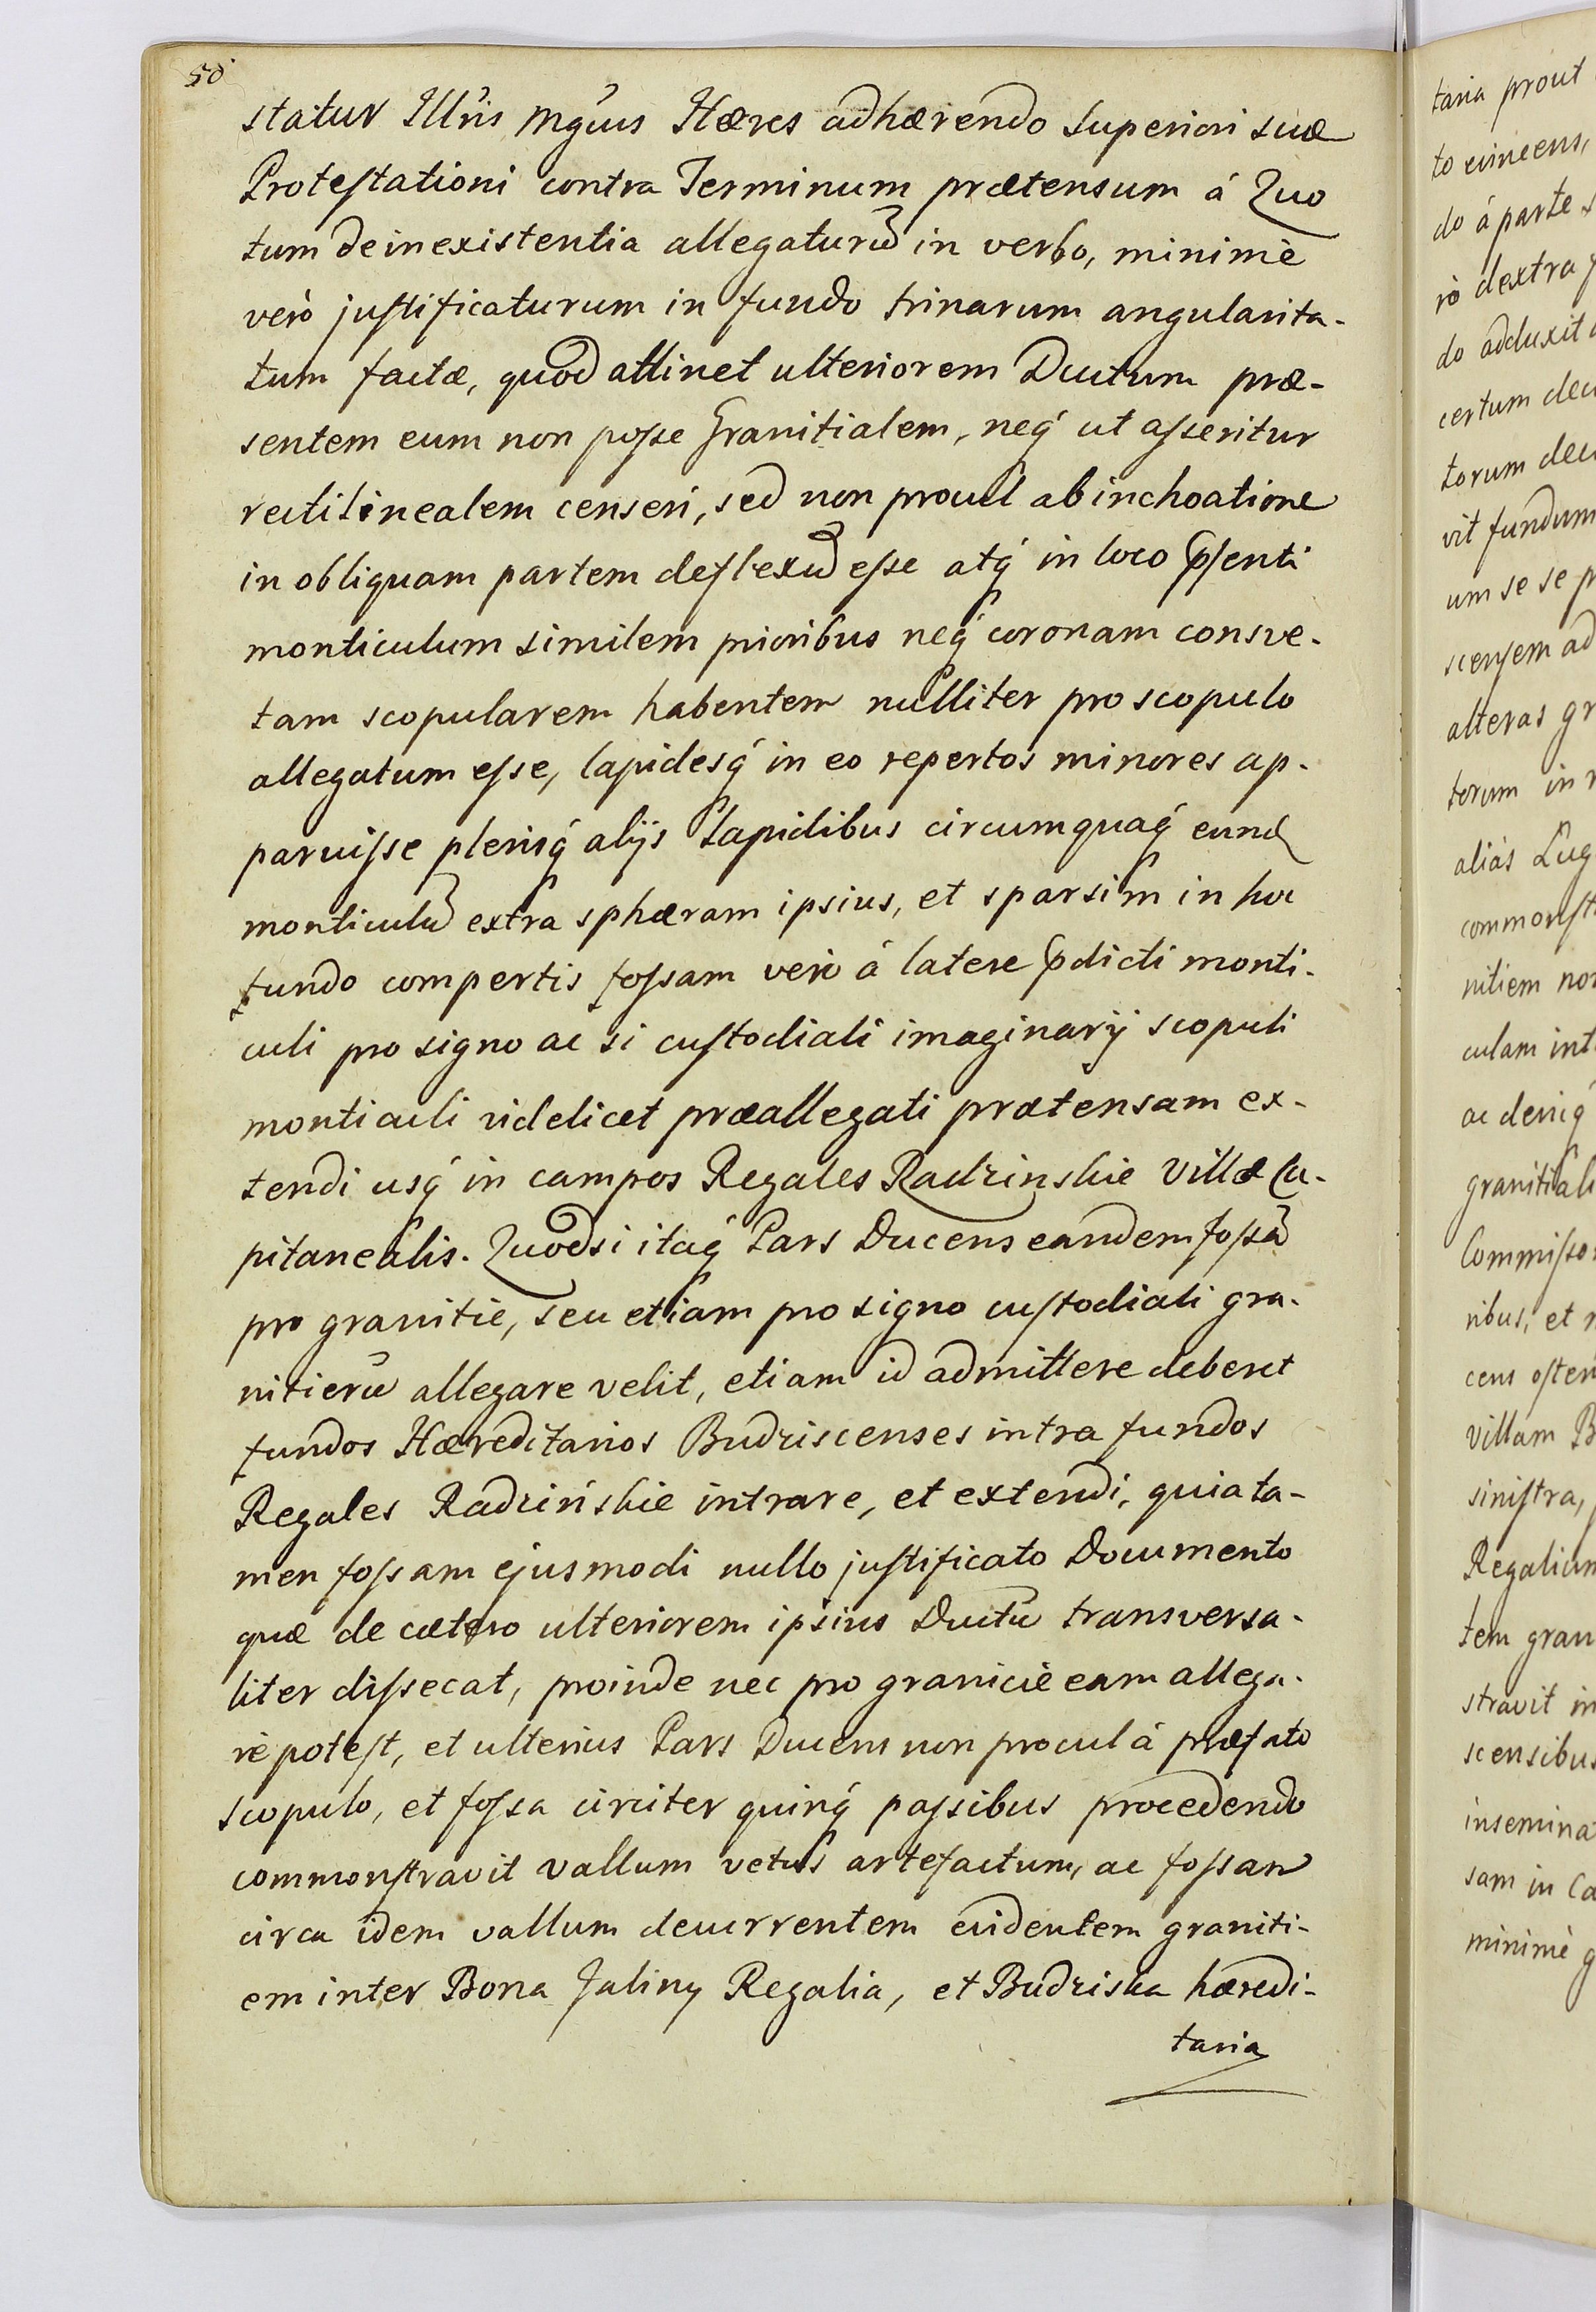 50
statur Illris Mgcus Hæres adhærendo superiori suæ
Protestationi contra Terminum prætensum á Quo
tum de inexistentia allegaturũ in verbo, minimè
verò justificaturum in fundo trinarum angularita-
tum factæ, quod attinet ulteriorem Ductum præ-
sentem eum non posse Granitialem, neq́ ut asseritur
rectilinealem censeri, sed non procul ab inchoatione
in obliquam partem deflexũ esse atq́ in loco p̃senti
monticulum similem prioribus neq́ coronam consve-
tam scopularem habentem nulliter pro scopulo
allegatum esse, lapidesq́ in eo repertos minores ap-
paruisse plerisq́ alijs Lapidibus circumquaq́ eund
monticulũ extra sphæram ipsius, et sparsim in hoc
fundo compertis fossam verò á latere p̃dicti monti-
culi pro signo ac si custodiali imaginarij scopuli
monticuli videlicet præallegati prætensam ex-
tendi usq́ in campos Regales Radzinskie Villæ Ca-
pitanealis. Quodsi itaq́ Pars Ducens eandem fossã
pro granitie, seu etiam pro signo custodiali gra-
nitierũ allegare velit, etiam id admittere deberet
fundos Hæreditarios Budziscenses intra fundos
Regales Radzińskie intrare, et extendi, quia ta-
men fossam ejusmodi nullo justificato Documento
quæ de cætero ulteriorem ipsius Ductũ transversa-
liter dissecat, proinde nec pro granicie eam allega-
re potest, et ulterius Pars Ducens non procul á præfato
scopulo, et fossa circiter quinq́ passibus procedendo
commonstravit vallum vetus artefactum, ac fossam
circa idem vallum decurrentem evidentem graniti-
em inter Bona Jaliny Regalia, et Budziska hæredi-
taria
taria prout
to evincens,
do á parte
rò dextra
do adduxit
certum
torum
vit fundum
um se se
scensem ad
alteras
torum in
aliás Ług
nitiem
culam
ac deniq
ribus, et
villam
sinistra,
tem
stravit in
scensibus
sam in
minimè